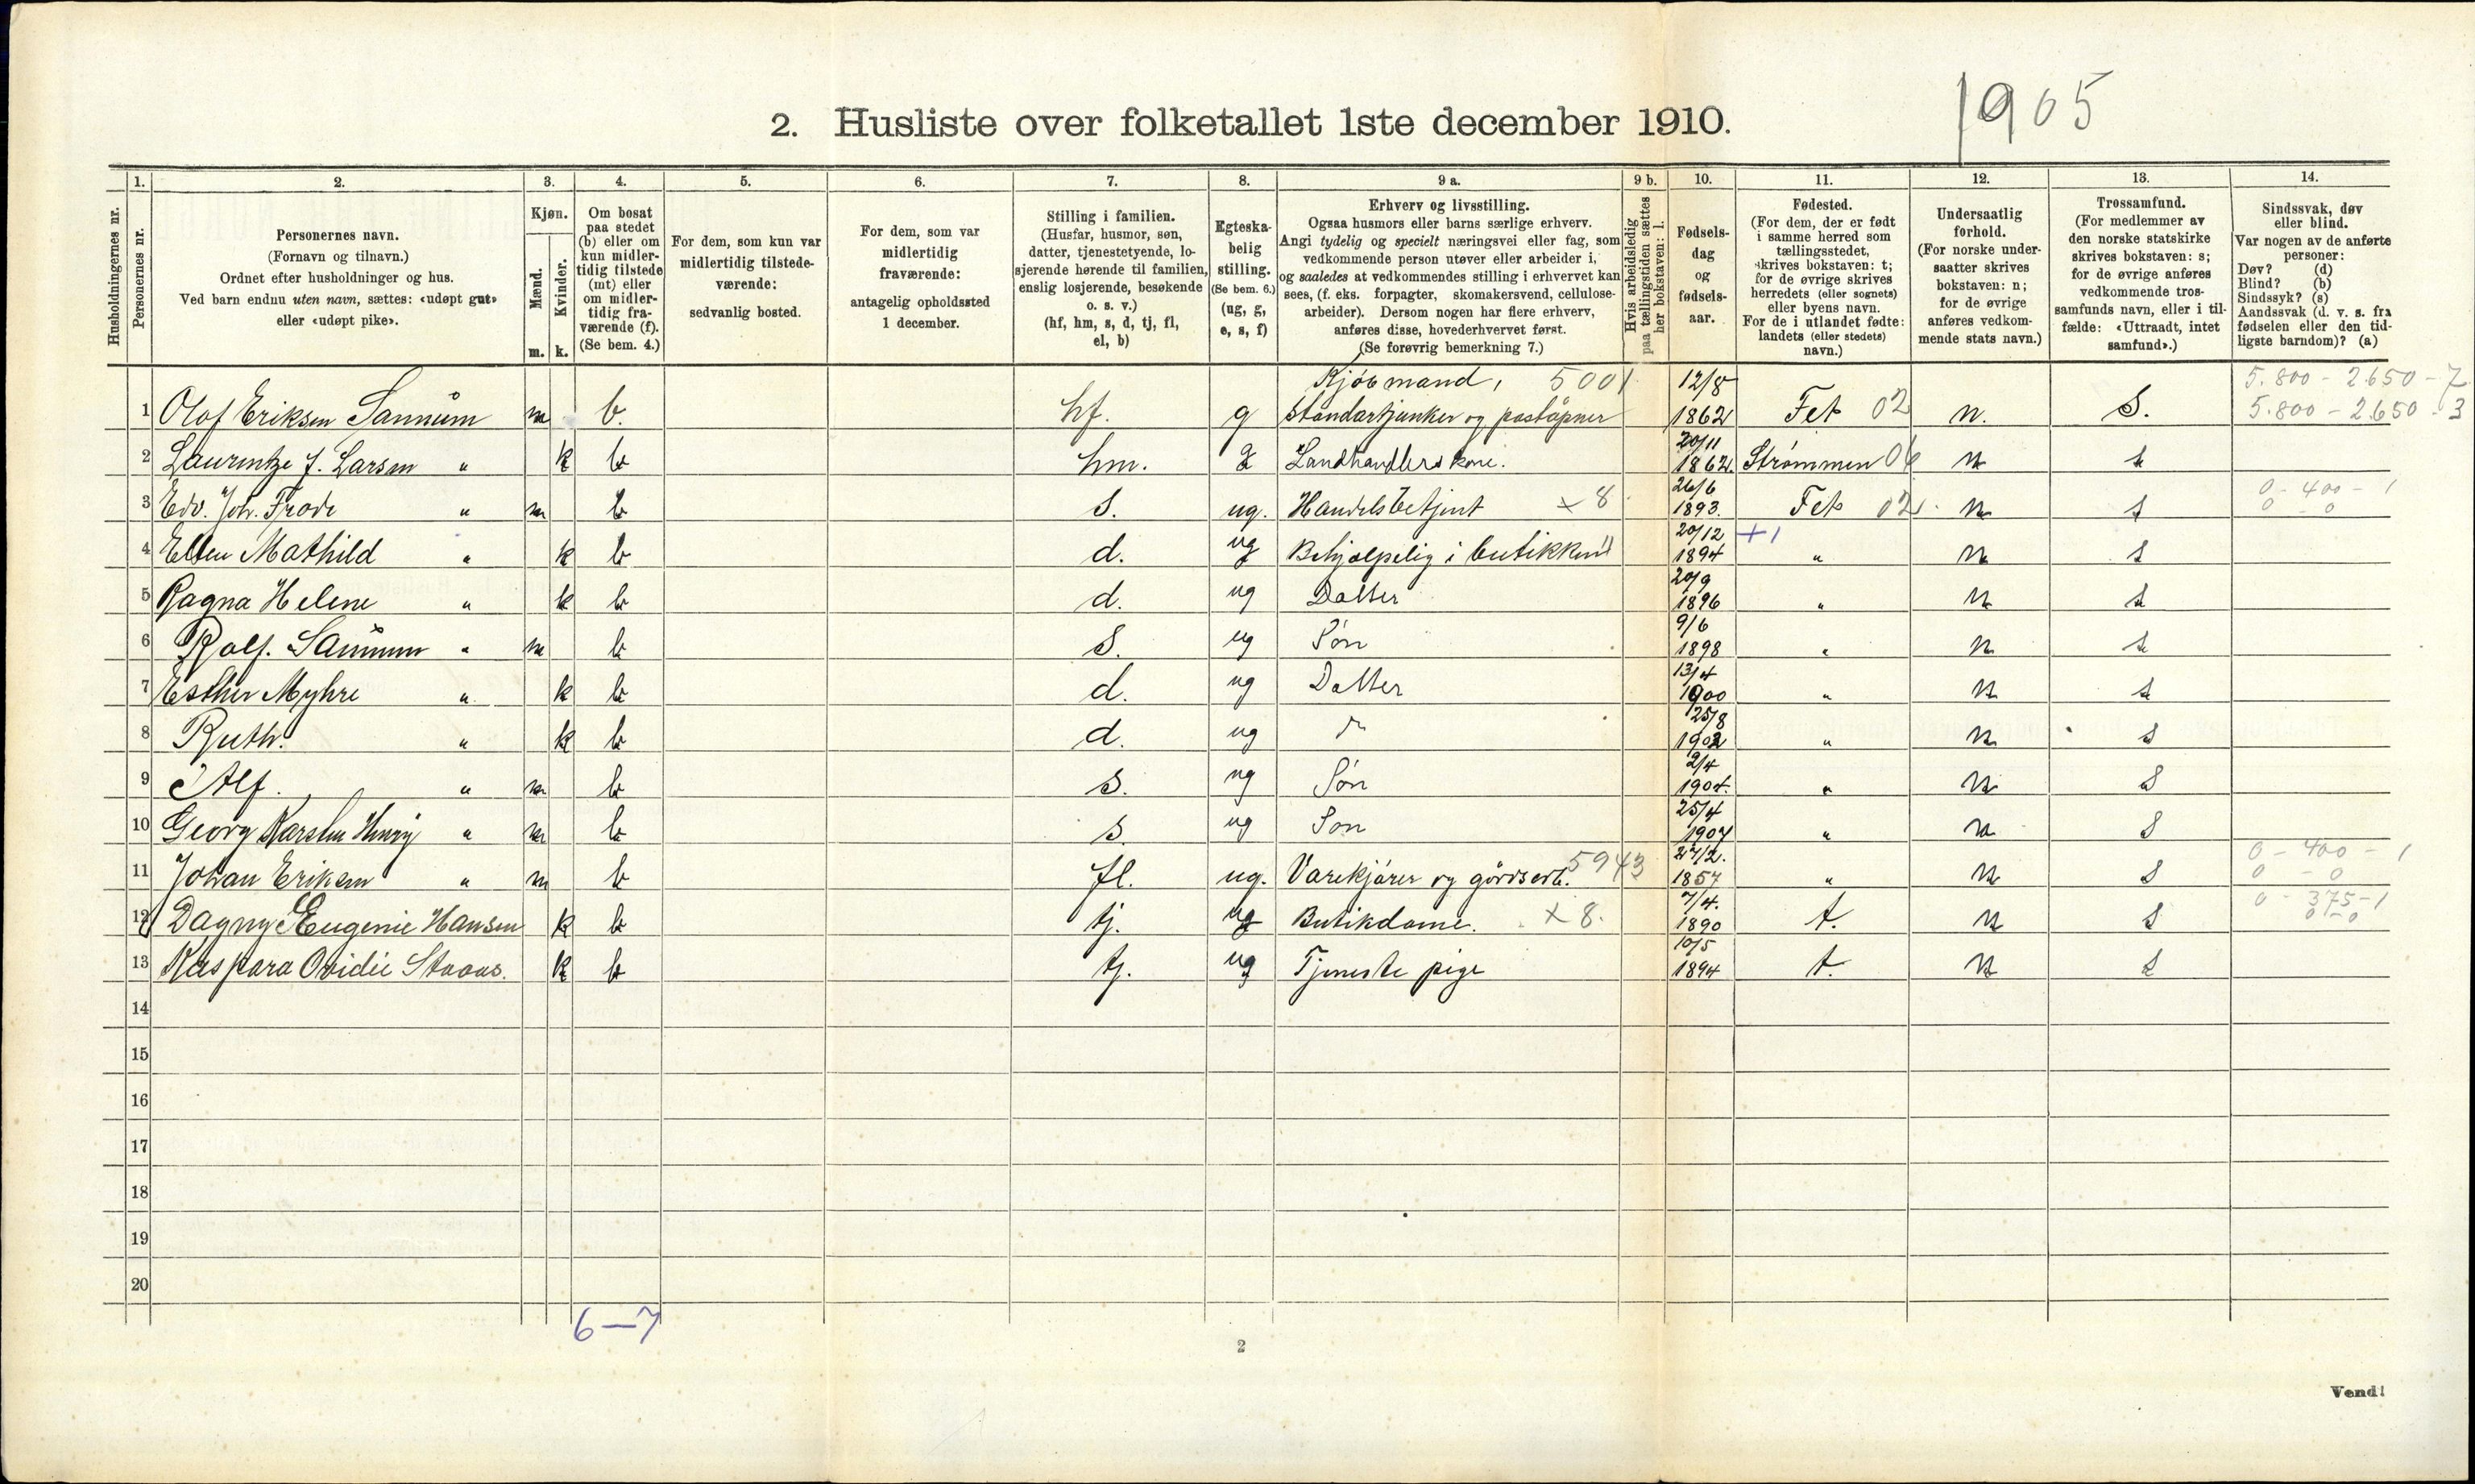 1905
2. Husliste over folketallet 1ste december 1910.
Husholdningernes nr.
1.
Personernes nr.
2.
Personernes navn.
(Fornavn og tilnavn.)
Ordnet efter husholdninger og hus.
Ved barn endnu uten navn, sættes: «udøpt gut»
eller «udøpt pike».
3.
Kjøn.
Mænd.
Kvinder.
m. k.
4.
Om bosat
paa stedet
(b) eller om
kun midler-
tidig tilstede
(mt) eller
om midler-
tidig fra-
værende (f).
(Se bem. 4.)
5.
For dem, som kun var
midlertidig tilstede-
værende:
sedvanlig bosted.
6.
For dem, som var
midlertidig
fraværende:
antagelig opholdssted
1 december.
7.
Stilling i familien.
(Husfar, husmor, søn,
datter, tjenestetyende, lo-
sjerende hørende til familien,
enslig losjerende, besøkende
o. s. v.)
(hf, hm, s, d, tj, fl,
el, b)
8.
Egteska-
belig
stilling.
(Se bem. 6.)
(ug, g,
e, s, f)
9 a.
Erhverv og livsstilling.
Ogsaa husmors eller barns særlige erhverv.
Angi tydelig og specielt næringsvei eller fag, som
vedkommende person utøver eller arbeider i,
og saaledes at vedkommendes stilling i erhvervet kan
sees, (f. eks. forpagter, skomakersvend, cellulose-
arbeider). Dersom nogen har flere erhverv,
anføres disse, hovederhvervet først.
(Se forøvrig bemerkning 7.)
9 b.
Hvis arbeidsledig
paa tællingstiden sættes
her bokstaven: l.
10.
Fødsels-
dag
og
fødsels-
aar.
11.
Fødested.
(For dem, der er født
i samme herred som
tællingsstedet,
skrives bokstaven: t;
for de øvrige skrives
herredets (eller sognets)
eller byens navn.
For de i utlandet fødte:
landets (eller stedets)
navn.)
12.
Undersaatlig
forhold.
(For norske under-
saatter skrives
bokstaven: n;
for de øvrige
anføres vedkom-
mende stats navn.)
13.
Trossamfund.
(For medlemmer av
den norske statskirke
skrives bokstaven: s;
for de øvrige anføres
vedkommende tros-
samfunds navn, eller i til-
fælde: «Uttraadt, intet
samfund».)
14.
Sindssvak, døv
eller blind.
Var nogen av de anførte
personer:
Døv? (d)
Blind? (b)
Sindssyk? (s)
Aandssvak (d. v. s. fra
fødselen eller den tid-
ligste barndom)? (a)
Kjøbmand, 5001 12/8 5.800 - 2.650 - 7
1 Olof Eriksen Sannum m b. hf. g standartjunker og poståpner 1862 Fet 02 n. S. 5.800 - 2.650 - 3
20/11
2 Laurentze J. Larsen " k b hm. g Landhandlers kone. 1862. Strømmen 06 n s
26/6 0 - 400 - 1
3 Edv. Joh. Frode " m b s. ug. Handelsbetjent × 8 1893. Fet 02 n s 0 - 0
20/12 +1
4 Ellen Mathild " k b d. ug Behjælpelig i butikken 1894 " n s
20/9
5 Ragna Helene " k b d. ug Datter 1896 " n s
9/6
6 Rolf. Sannum " m b s. ug Søn 1898 " n s
13/4
7 Esther Myhre " k b d. ug Datter 1900 " n s
25/8
8 Ruth. " k b d. ug 1902 " n s
2/4
9 Alf. " m b s. ug Søn 1904. " n s
25/4
10 Georg Karsten Henry " m b s. ug Søn 1907 " n s
27/2. 0 - 400 - 1
11 Johan Eriksen " m b fl. ug. Varekjører og gårdsarb. 5943 1857 " n s 0 - 0
7/4. 0 - 375 - 1
12 Dagny Eugenie Hansen k b tj. ug Butikdame. × 8. 1890 t. n s 0 - 0
10/5
13 Kaspara Ovidie k b tj. ug Tjeneste pige 1894 t. n s
14
15
16
17
18
19
20
6 — 7
2
Vend!